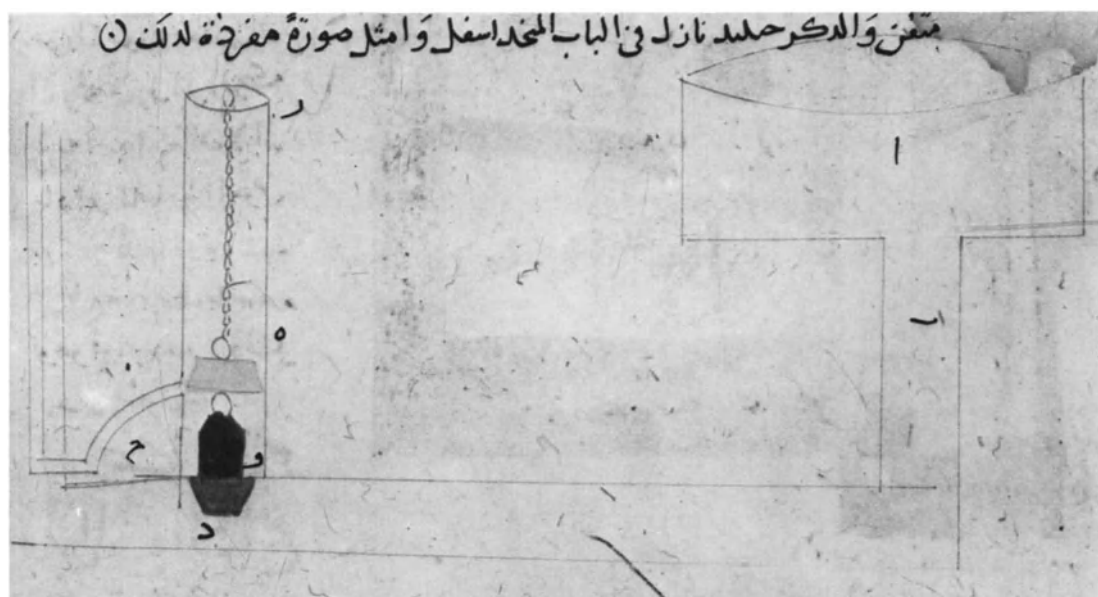 متقن وَالذكر حينئذ نازل في الباب المتخذ اسفل وَامثل صورةً مفردة لذلك
ر
ا
ب
ه
ح
و
د